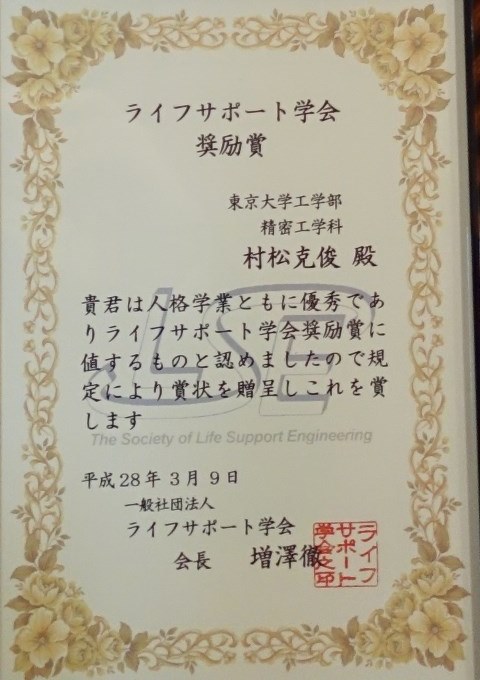 ライフサポート学会
奨励賞
東京大学工学部
精密工学科
村松克俊 殿
貴君は人格学業ともに優秀であ
りライフサポート学会奨励賞に
値するものと認めましたので規
定により賞状を贈呈しこれを賞
します
LSE
The Society of Life Support Engineering
平成28年 3月 9日
一般社団法人
ライフサポート学会
会長 増澤徹
ライフ
サポート
学会之印